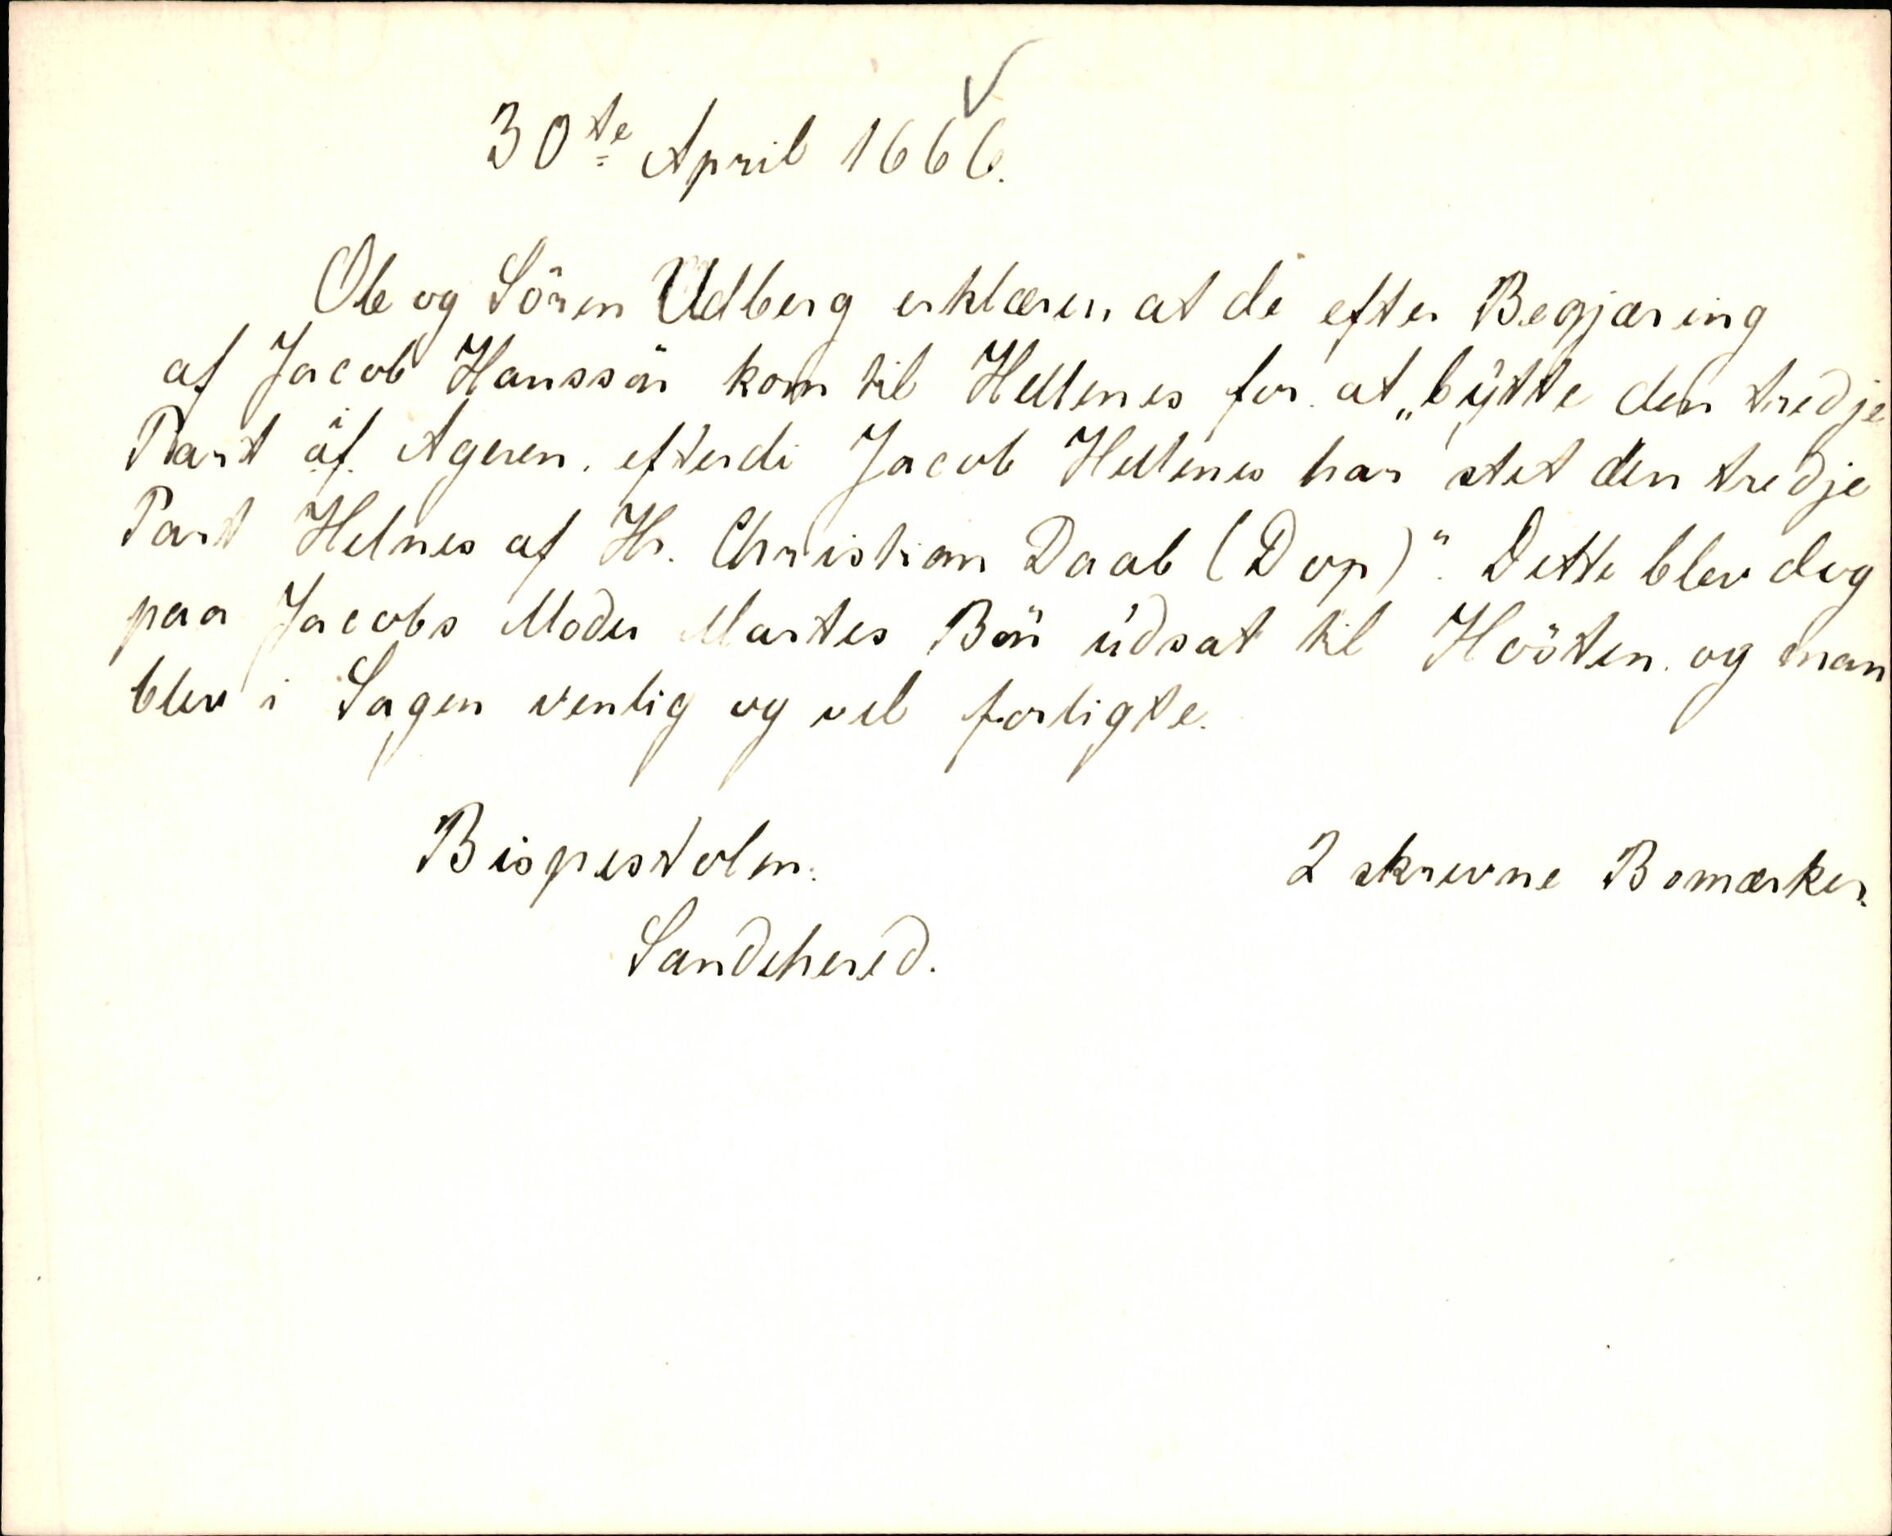 30te April 1666.
Ole og Sören Udberg erklærer, at de efter Begjæring
af Jacob Hanssön kom til Hellenes for at „býtte den tredje
Part af Ageren, efterdi Jacob Hellenes har stet den tredje
Part Helnes af Hr. Christian Daab (Dop)". Dette blev dog
paa Jacobs Moder Martes Bön údsat til Hoösten og man
blev i Sagen venlig og vel forligte.
Bispestolen. 2 skrevne Bomærker.
Sandehered.